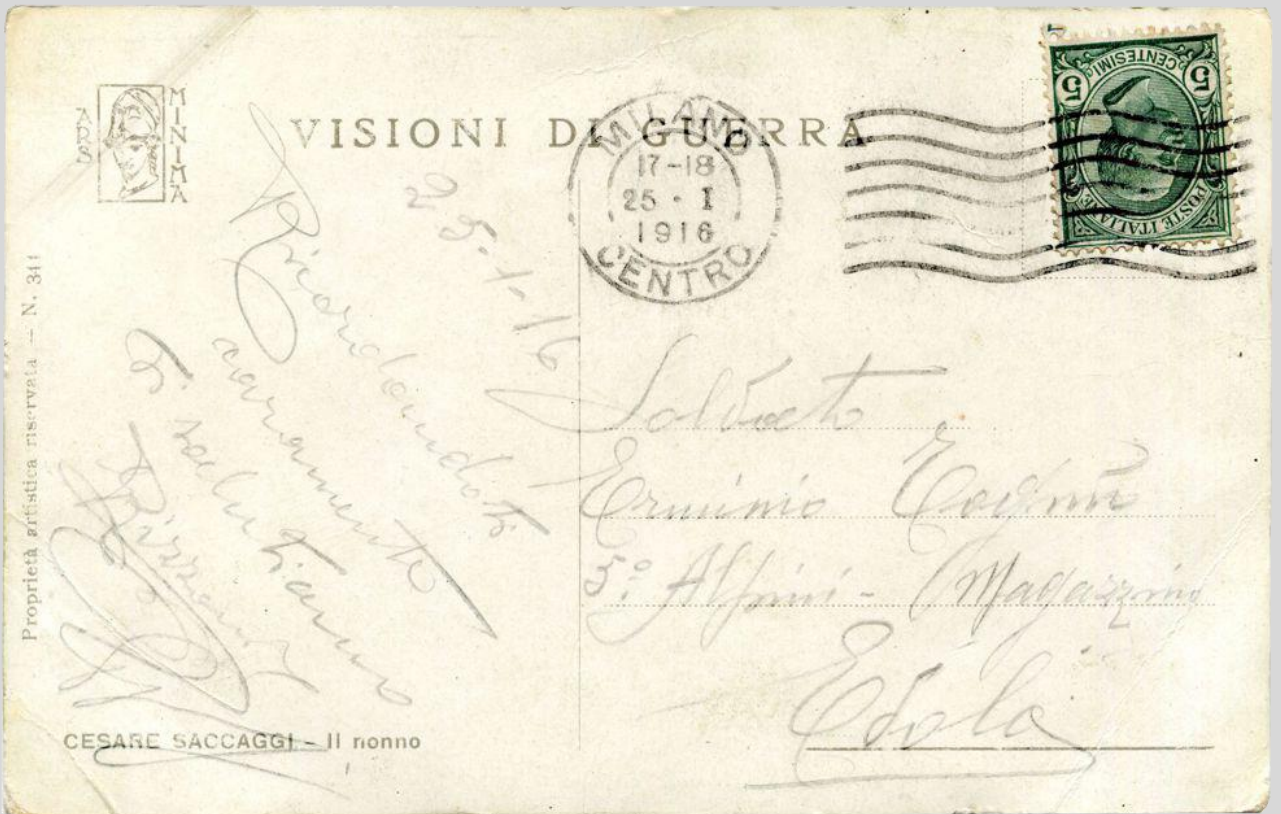 ARS
MINIMA
VISIONI DI GUERRA
MILANO
17-18
25 · I
1916
CENTRO
5 CENTESIMI 5
POSTE ITALIANE
Proprietà artistica riservata — N. 311
25-1-16
Ricordandoti
caramente
ti salutiamo
Soldato
Erminio
5° Alpini - Magazzino
Edolo
CESARE SACCAGGI - Il nonno